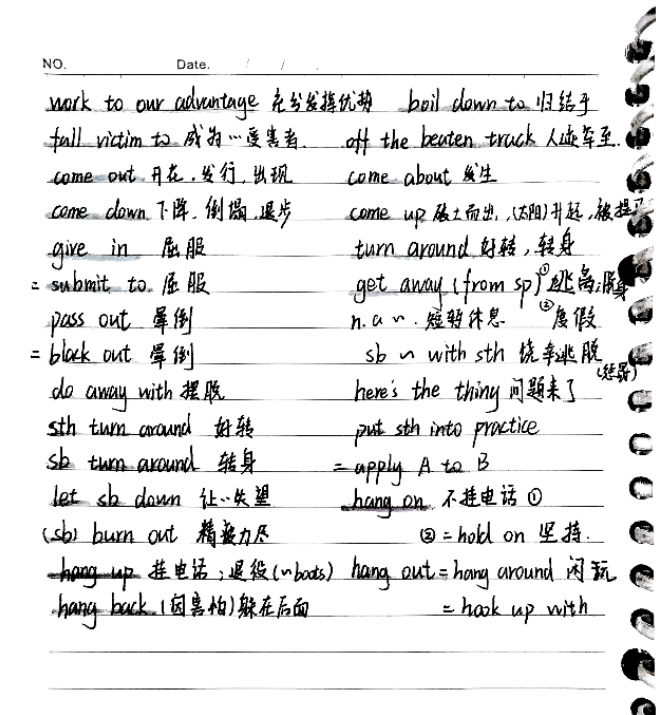 NO. Date. / /
work to our advantage 充分发挥优势 boil down to 归结于
fall victim to 成为…受害者. off the beaten track 人迹罕至.
come out 开花.发行.出现 come about 发生
come down 下降.倒塌.退步 come up 破土而出,(太阳)升起,被提及
give in 屈服 turn around 好转,转身
= submit to. 屈服 get away (from sp) ①逃离;脱身
pass out 晕倒 n. a ~. 短暂休息 ②度假
= black out 晕倒 sb ~ with sth 侥幸逃脱
(惩罚)
do away with 摆脱 here's the thing 问题来了
sth turn around 好转 put sth into practice
sb turn around 转身 = apply A to B
let sb down 让…失望 hang on 不挂电话 ①
(sb) burn out 精疲力尽 ② = hold on 坚持.
hang up 挂电话;退役(~boots) hang out = hang around 闲玩
hang back (因害怕)躲在后面 = hook up with